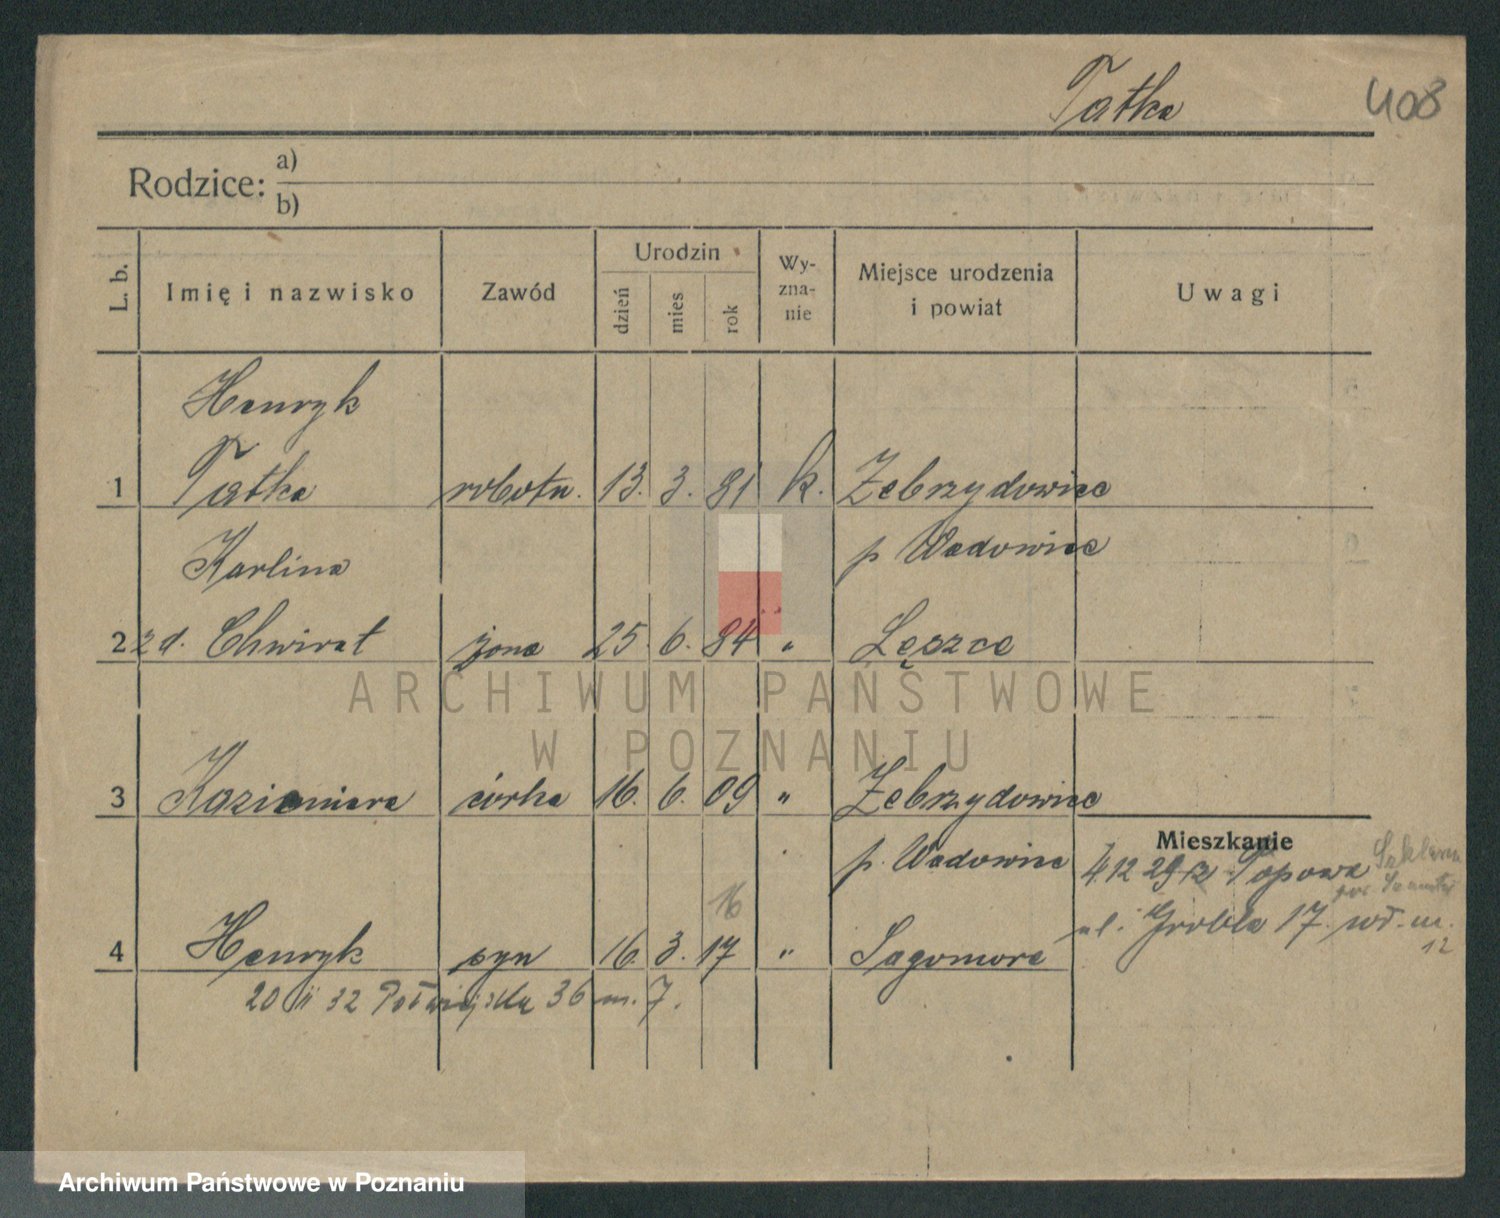 Tatka
408
Rodzice: a)
b)
L. b.
Imię i nazwisko
Zawód
Urodzin
dzień
mies
rok
Wy-
zna-
nie
Miejsce urodzenia
i powiat
Uwagi
Henryk
1 Tatka robotn. 13. 3. 81 k. Zebrzydowice
Karlina p Wadowice
2 zd. Chwirat żona 25. 6. 84 " Łęczce
3 Kazimiera córka 16. 6. 09 " Zebrzydowice
p. Wadowice
Mieszkanie
4.12 29 z Popowa
16
ul. Grobla 17. m.
12
4 Henryk syn 16. 3. 17 " Sagomore
20 II 32 Półwiejska 36 m. 7.
ARCHIWUM PAŃSTWOWE
W POZNANIU
Archiwum Państwowe w Poznaniu